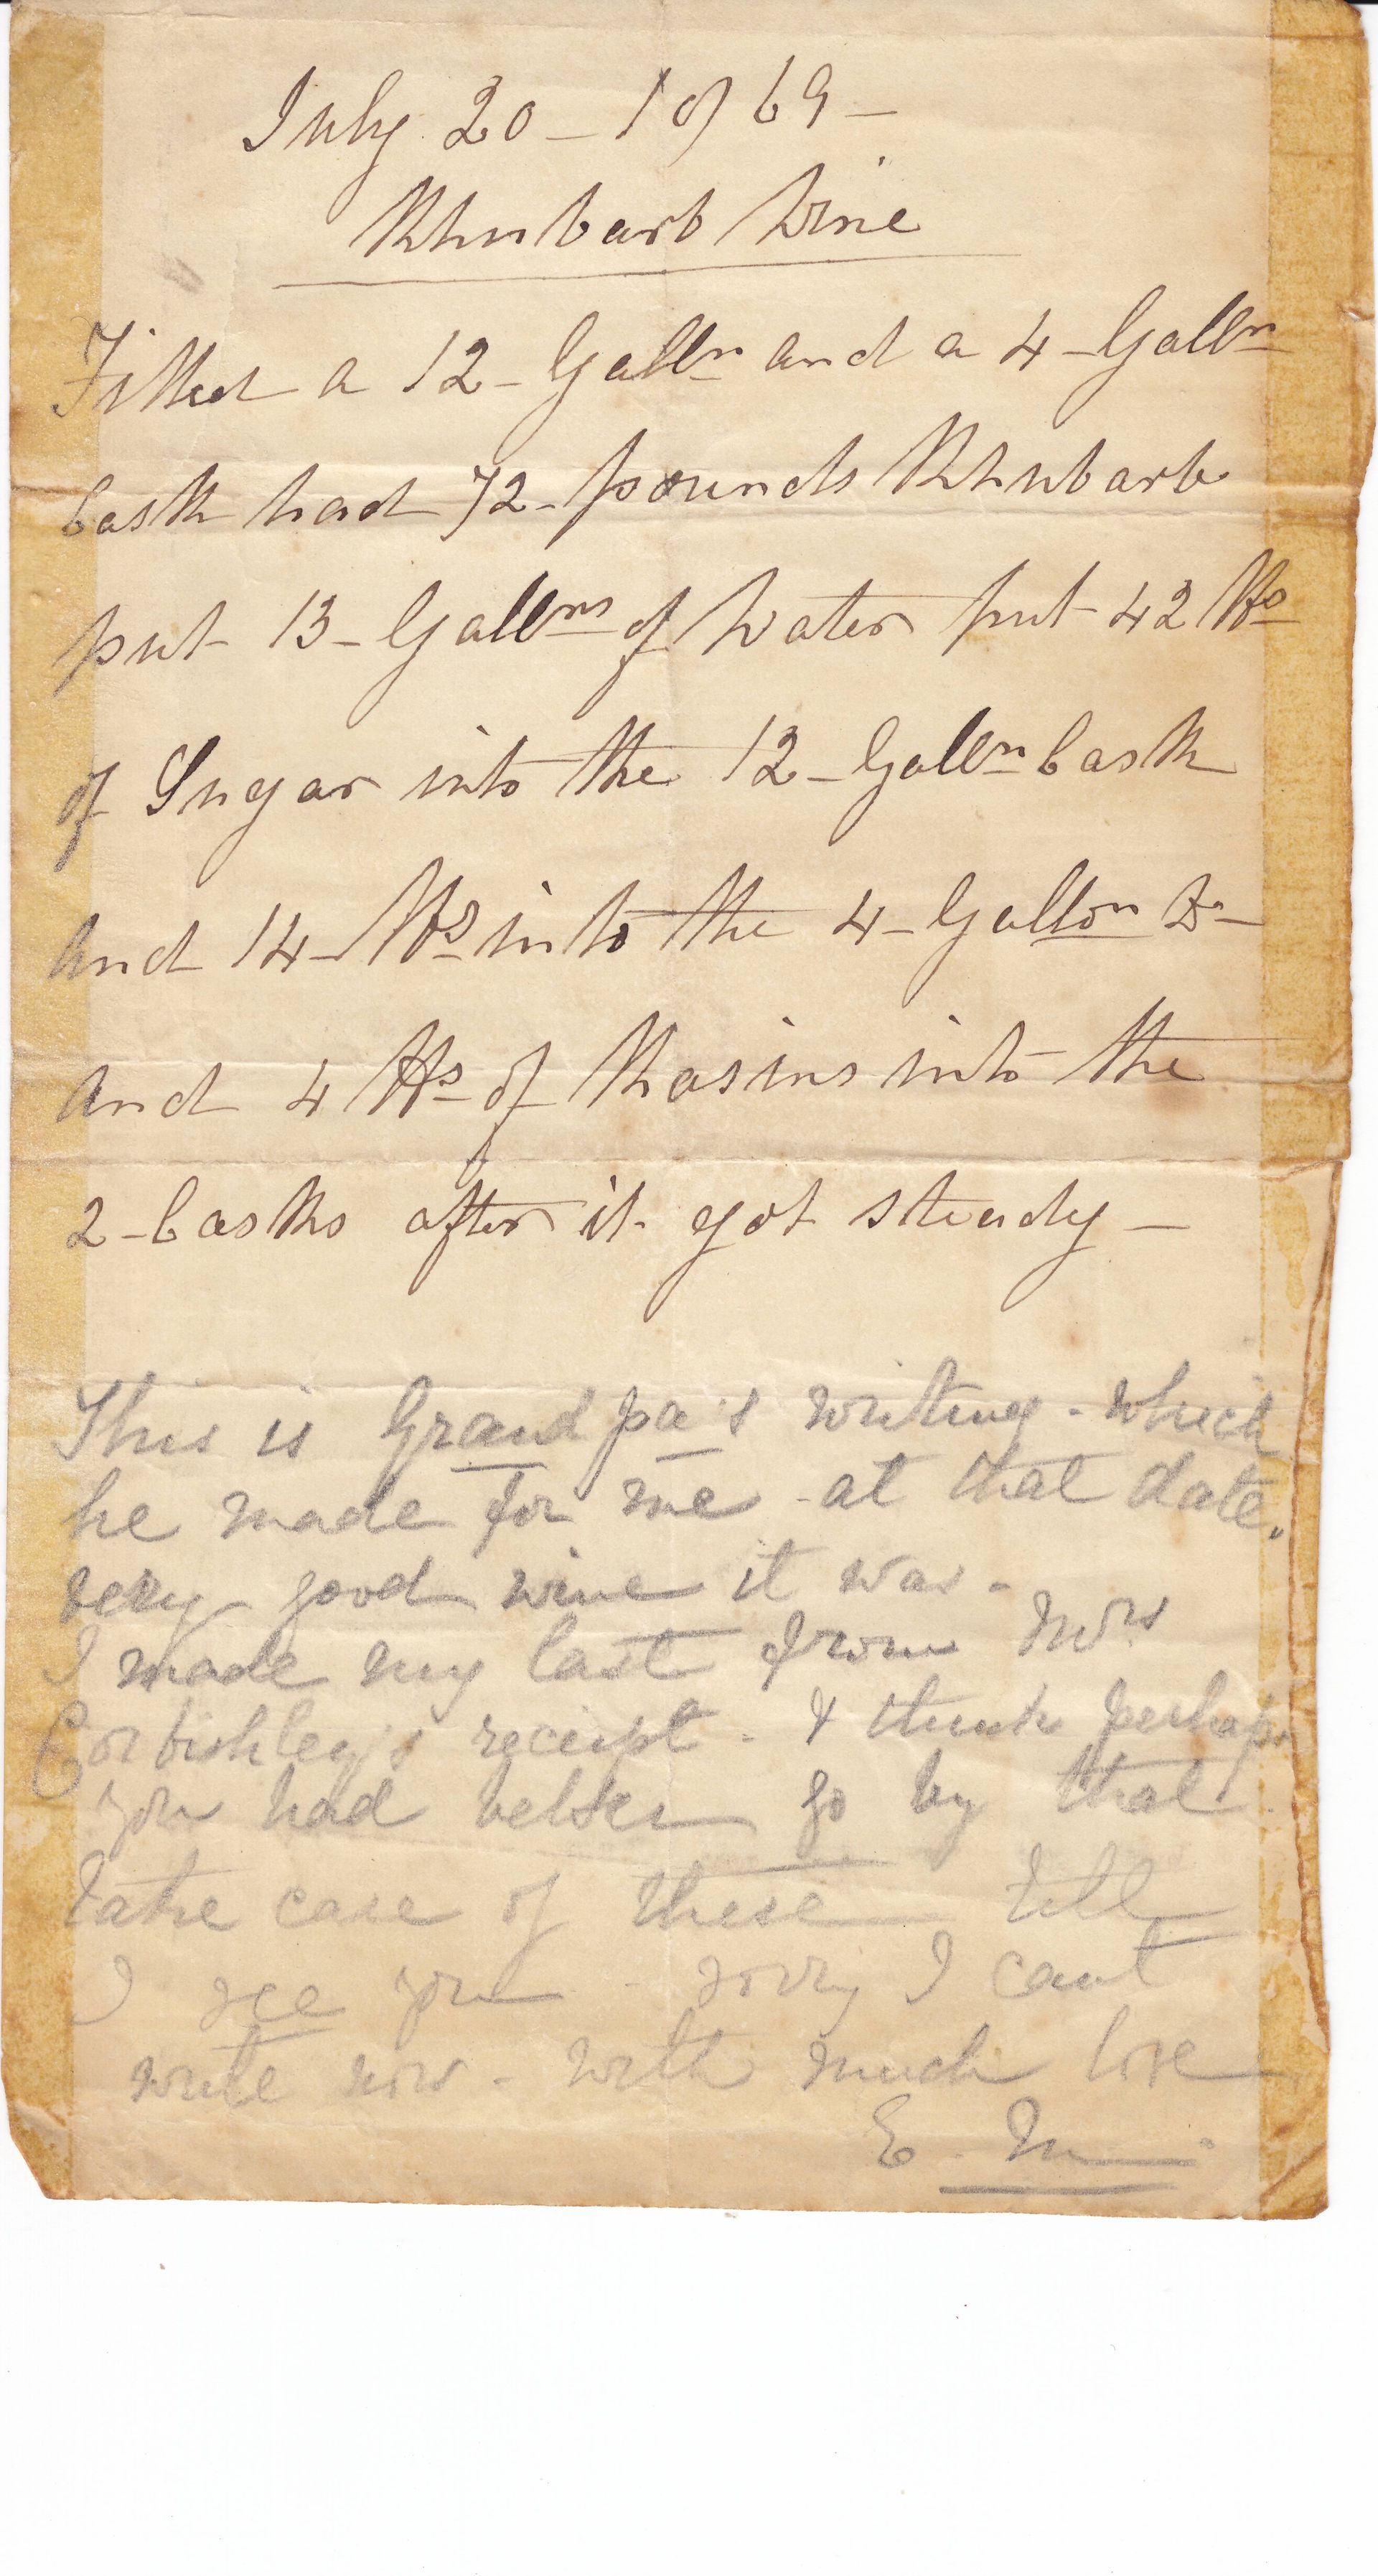 July 20 - 1869 -
Rhubarb Wine
Filled a 12 - Galln and a 4 - Galln
Cask had 72 - pounds Rhubarb
put 13 - Gallns of Water put 42 lbs
of Sugar into the 12 - Galln Cask
And 14 - lbs into the 4 - Gallon Do -
And 4 lbs of Rasins into the
2 - Casks after it got steady -
This is Grandpa's writing - which
he made for me - at that date.
very good wine it was -
I made my last from Mrs
Corbishley's receipt - & think perhaps
you had better go by that
Take care of these till
I see you - sorry I cant
write now - with much love
E. M